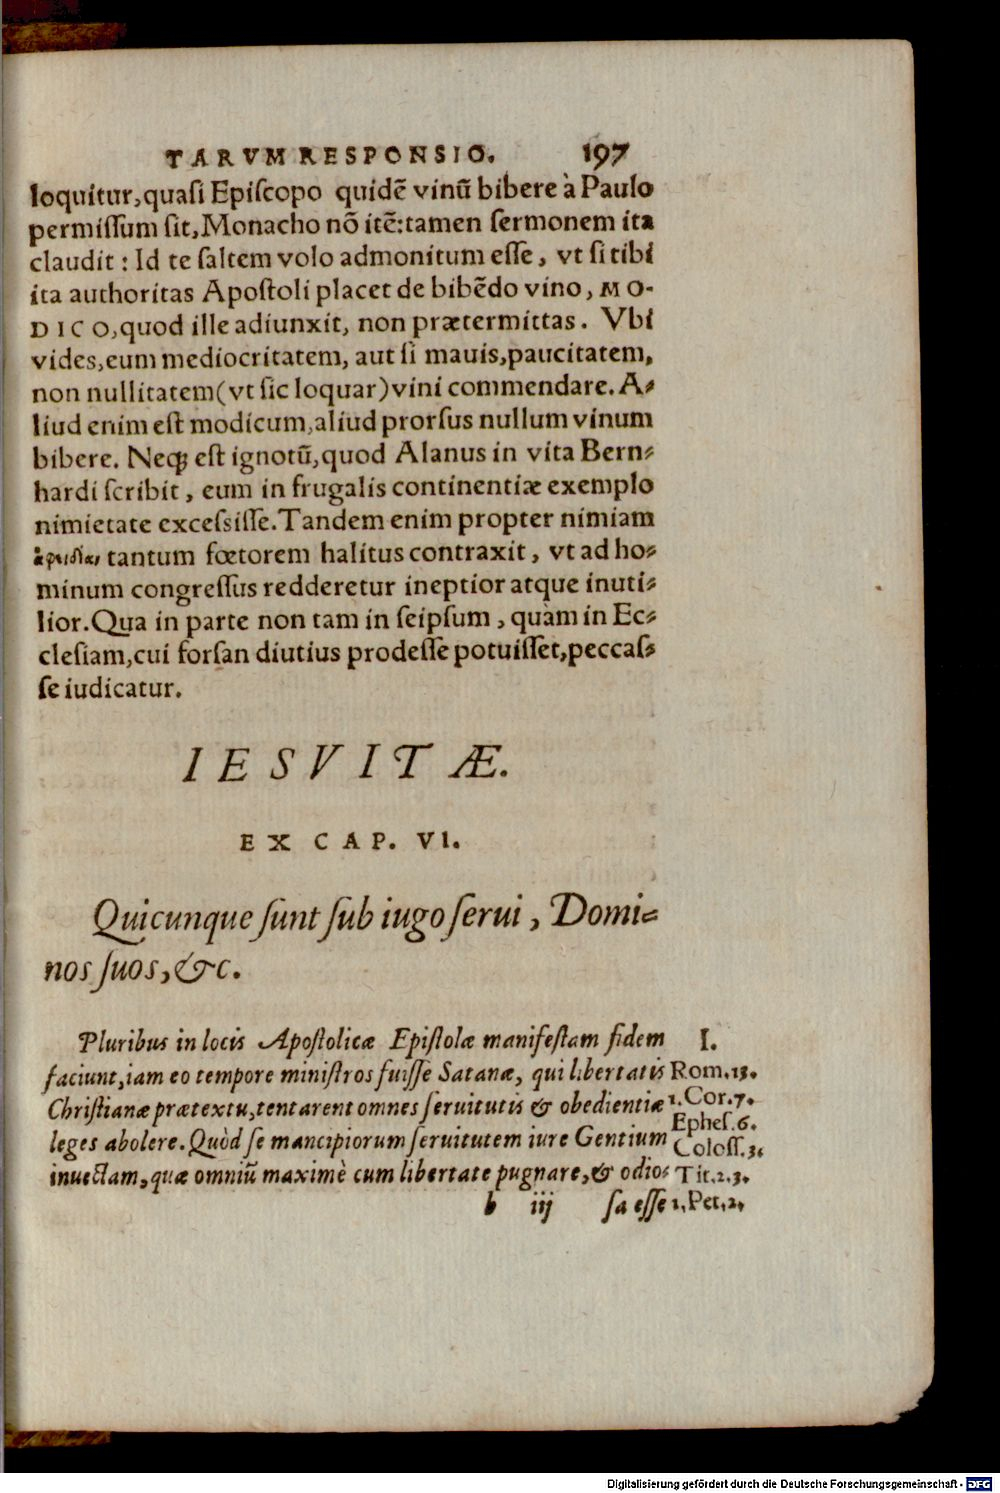 TARVM RESPONSIO. 197
loquitur,quasi Episcopo quidē vinū bibere à Paulo
permissum sit,Monacho nō itē:tamen sermonem ita
claudit : Id te saltem volo admonitum esse, vt si tibi
ita authoritas Apostoli placet de bibēdo vino, MO-
DICO,quod ille adiunxit, non prætermittas. Vbi
vides,eum mediocritatem, aut si mauis,paucitatem,
non nullitatem(vt sic loquar)vini commendare. A-
liud enim est modicum,aliud prorsus nullum vinum
bibere. Neq; est ignotū,quod Alanus in vita Bern-
hardi scribit, eum in frugalis continentiæ exemplo
nimietate excessisse.Tandem enim propter nimiam
tantum fœtorem halitus contraxit, vt ad ho-
minum congressus redderetur ineptior atque inuti-
lior.Qua in parte non tam in seipsum, quàm in Ec-
clesiam,cui forsan diutius prodesse potuisset,peccas-
se iudicatur.
IESVITÆ.
EX CAP. VI.
Quicunque sunt sub iugo serui, Domi-
nos suos, &c.
Pluribus in locis Apostolicæ Epistolæ manifestam fidem
faciunt,iam eo tempore ministros fuisse Satanæ, qui libertatis
Christianæ prætextu,tentarent omnes seruitutis & obedientiæ
leges abolere.Quòd se mancipiorum seruitutem iure Gentium
inuectam,quæ omniū maximè cum libertate pugnare,& odio-
b iij sa esse
I.
Rom.13.
1.Cor.7.
Ephes.6.
Coloss.3.
Tit.2.3.
1.Pet.2.
Digitalisierung gefördert durch die Deutsche Forschungsgemeinschaft - DFG